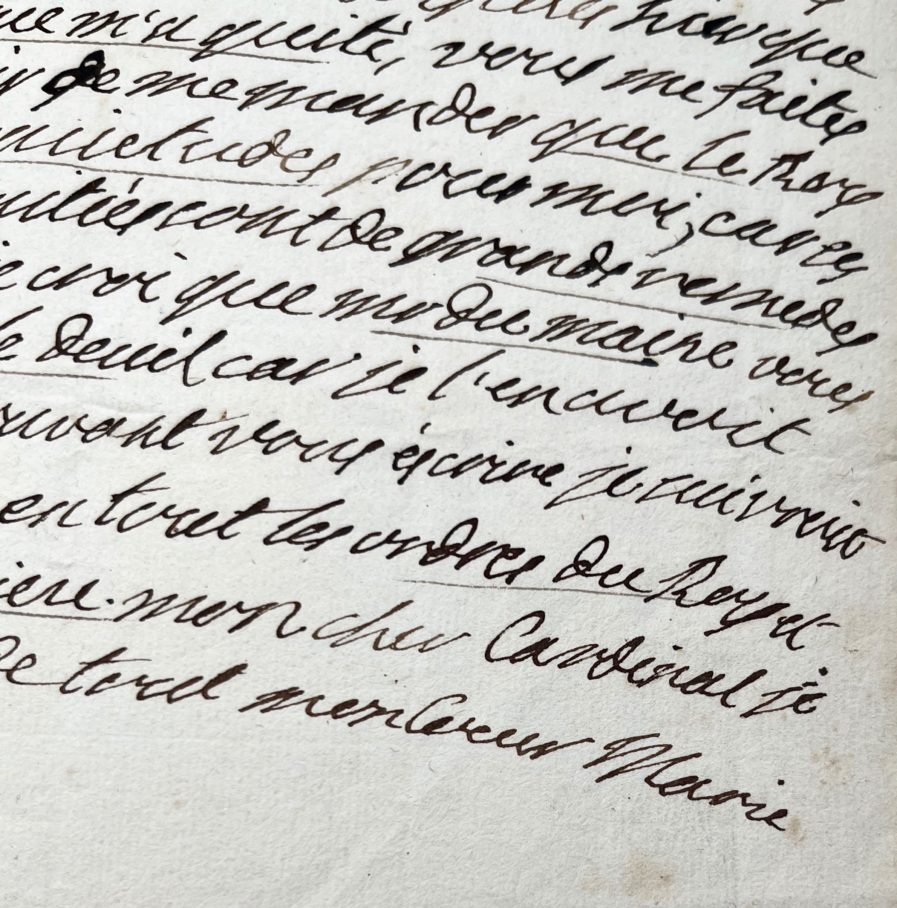 hier que
m'a quité, vous me faites
de me mander que le Roy a
quietudes pour moi, car ces
mitiés sont de grands remedes
je croi que mr du maine vous
le deuil car je l'en avoit
avant vous écrire je suivrois
en tout les ordres du Roy et
dieu mon cher Cardinal je
de tout mon Coeur Marie